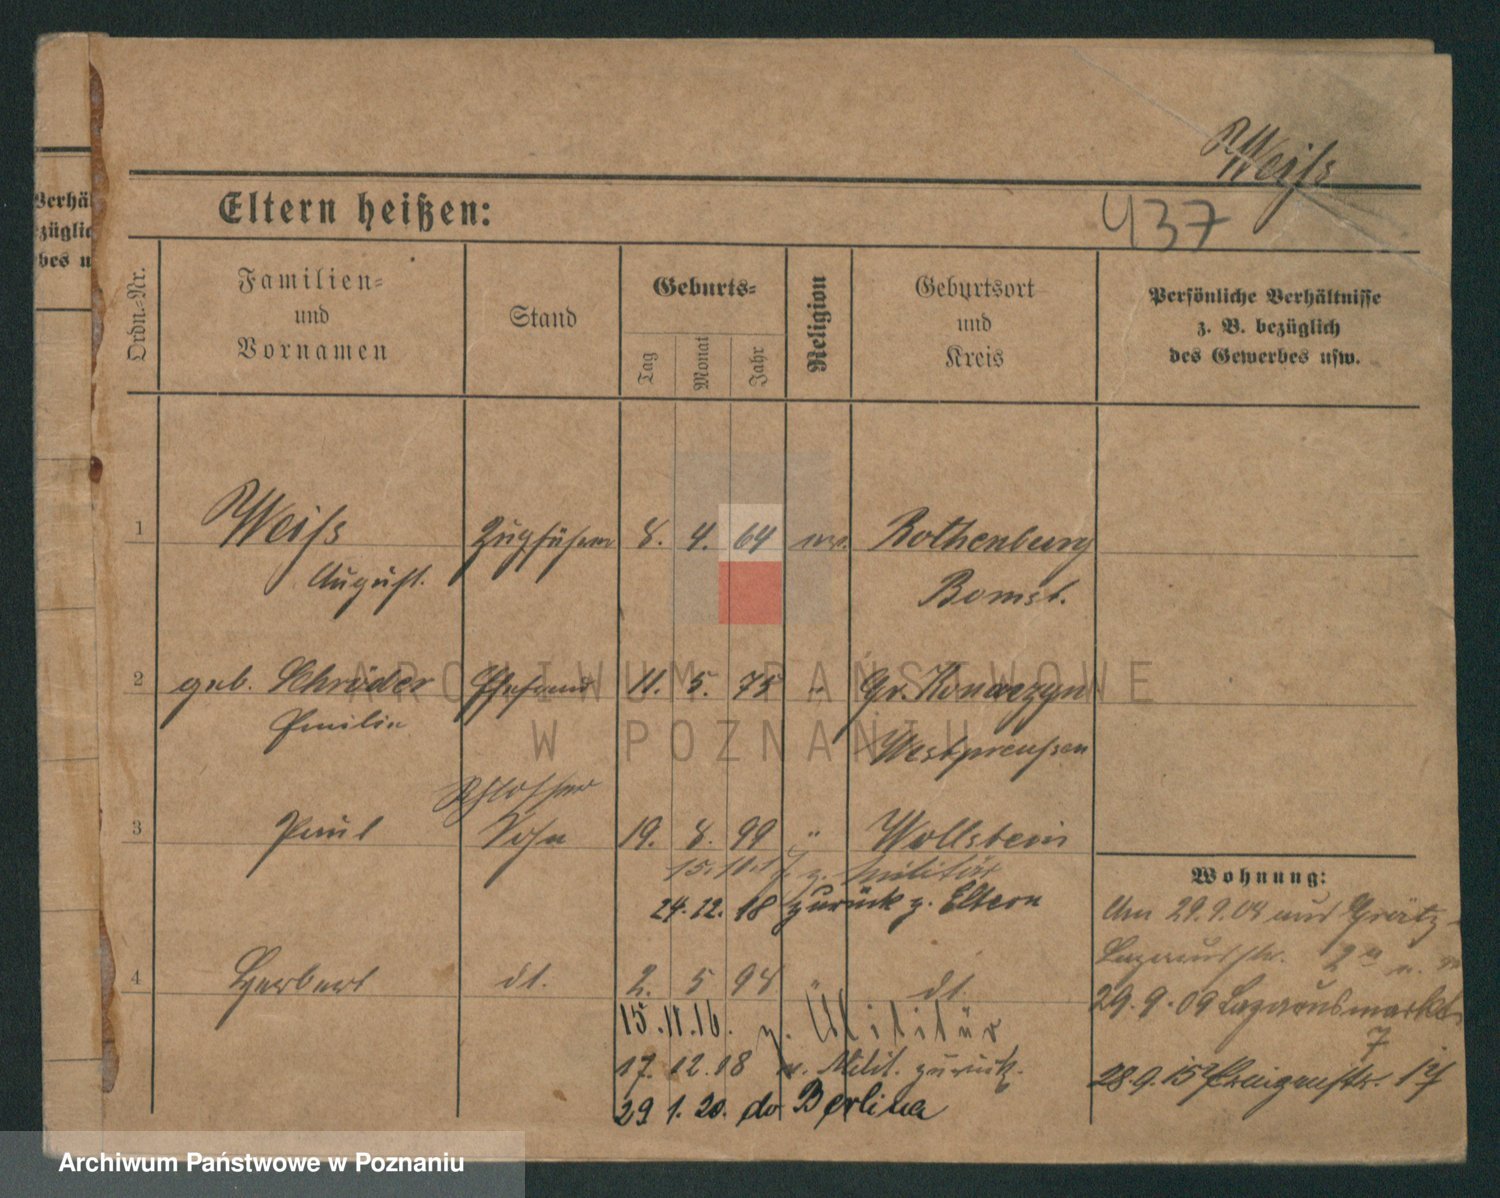 Weiß
Eltern heißen:
437
Verhä
züglic
bes u
Ordn.-Nr.
Familien-
und
Vornamen
Stand
Geburts-
Tag
Monat
Jahr
Religion
Geburtsort
und
Kreis
Persönliche Verhältnisse
z. B. bezüglich
des Gewerbes usw.
1 Weiß 8. 4. 64 Rothenburg
August. Bomst.
2 geb. Schröder Ehefrau 11. 5. 75 " Gr. Konarzyn
Emilie Westpreußen
Schlosser
3 Paul Sohn 19. 8. 99 " Wollstein
z. Militär
24.12.18 zurück z. Eltern
4 Herbert dt. 2. 5 98 " dt.
15.11.16. z. Militär
17.12.18 v. Milit. zurück.
29 1. 20. do Berlina
Wohnung:
Am 29.9.08 aus Grätz
29.9.09 Lazarusmarkt
7
28.9.15
ARCHIWUM PAŃSTWOWE
W POZNANIU
Archiwum Państwowe w Poznaniu